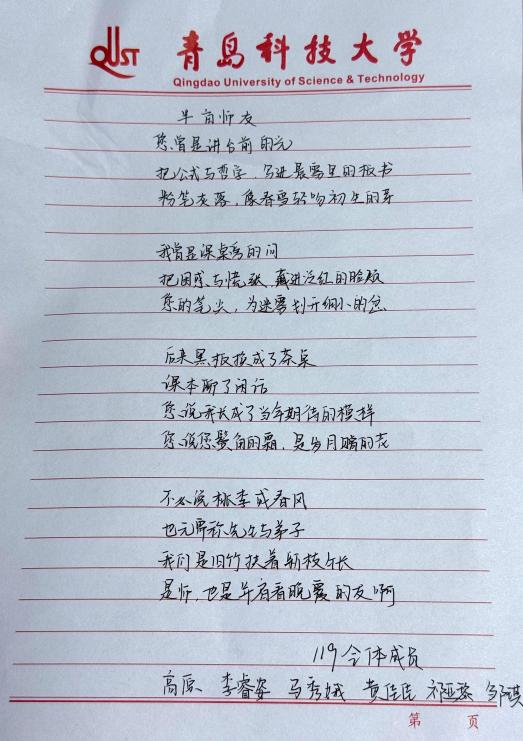 QUST 青岛科技大学
Qingdao University of Science & Technology
半肩师友
您曾是讲台前的光
把公式与哲学，写进晨雾里的板书
粉笔灰落，像春雪轻吻初生的芽
我曾是课桌旁的问
把困惑与慌张，藏进泛红的脸颊
您的笔尖，为迷雾划开细小的岔
后来黑板换成了茶桌
课本聊了闲话
您说我长成了当年期待的模样
您说您鬓角的霜，是岁月赠的花
不必说桃李或春风
也无需称先生与弟子
我们是旧竹扶着新枝生长
是师，也是并肩看晚霞的友啊
119全体成员
高原 李睿姿 马秀娥 黄佳佳
第 页